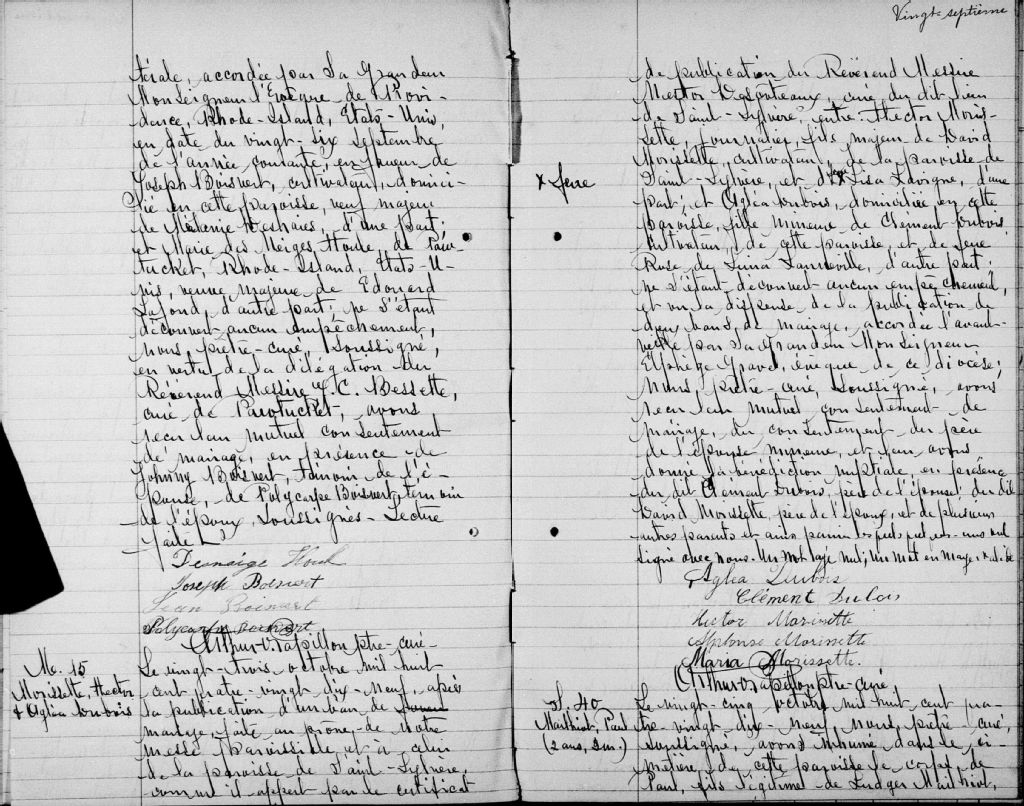 térale, accordée par Sa Grandeur
Monseigneur l'Evêque de Provi-
dence, Rhode-Island, Etats-Unis,
en date du vingt-six septembre
de l'année courante, en faveur de
Joseph Boisvert, cultivateur, domici-
lié en cette paroisse, veuf majeur
de Mélenie Deshaies, d'une part;
et Marie des Neiges Houle, de Paw-
tucket, Rhode-Island, Etats-U-
nis, veuve majeure de Edouard
Lafond, d'autre part, ne s'étant
découvert aucun empêchement,
nous, prêtre-curé, soussigné,
en vertu de la délégation du
Révérend Messire C. Bessette,
curé de Pawtucket, avons
reçu leur mutuel consentement
de mariage, en présence de
Johnny Boisvert, témoin de l'é-
pouse, de Polycarpe Boisvert, témoin
de l'époux, soussignés. Lecture
faite
Houle
Joseph Boisvert
Jean Boisvert
Polycarpe Boisvert
Arthur V. Papillon ptre-curé
M. 15
Morissette, Hector
& Aglea Dubois
Le vingt-trois octobre mil huit
cent quatre-vingt-dix-neuf, après
la publication d'un ban de
mariage, faite au prône de notre
messe paroissiale et à celui
de la paroisse de Saint-Sylvère,
comme il appert par le certificat
Vingt-septième
de publication du Révérend Messire
Hector Desfosseaux, curé du dit lieu
de Saint-Sylvère, entre Hector Moris-
sette, journalier, fils majeur de David
Morissette, cultivateur, de la paroisse de
x feue
Saint-Sylvère, et de x Lisa Lavigne, d'une
part; et Aglea Dubois, domiciliée en cette
paroisse, fille mineure de Clément Dubois
cultivateur, de cette paroisse, et de feue
Rose de Lima Lanneville, d'autre part;
ne s'étant découvert aucun empêchement,
et vu la dispense de la publication de
deux bans de mariage, accordée l'avant-
veille par Sa Grandeur Monseigneur
Elphège Gravel, évêque de ce diocèse;
nous, prêtre-curé, soussigné, avons
reçu leur mutuel consentement de
mariage, du consentement du père
de l'épouse mineure, et leur avons
donné la bénédiction nuptiale, en présence
du dit Clément Dubois, père de l'épouse, du dit
David Morissette, père de l'époux, et de plusieurs
autres parents et amis parmi lesquels quelques-uns ont
signé avec nous. Un mot rayé nul; un mot en marge x
Aglea Dubois
Clément Dubois
Hector Morissette
Alphonse Morissette
Maria Morissette.
Arthur V. Papillon ptre-curé
S. 40
Mailhiot, Paul
(2 ans, 2 m.)
Le vingt-cinq octobre mil huit cent qua-
tre-vingt-dix-neuf, nous, prêtre-curé,
soussigné, avons inhumé dans le ci-
metière de cette paroisse le corps de
Paul, fils légitime de Ludger Mailhiot,